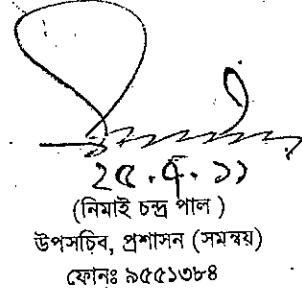 ২৫.৭.১১
(নিমাই চন্দ্র পাল)
উপসচিব, প্রশাসন (সমন্বয়)
ফোনঃ ৯৫৫১৩৮৪